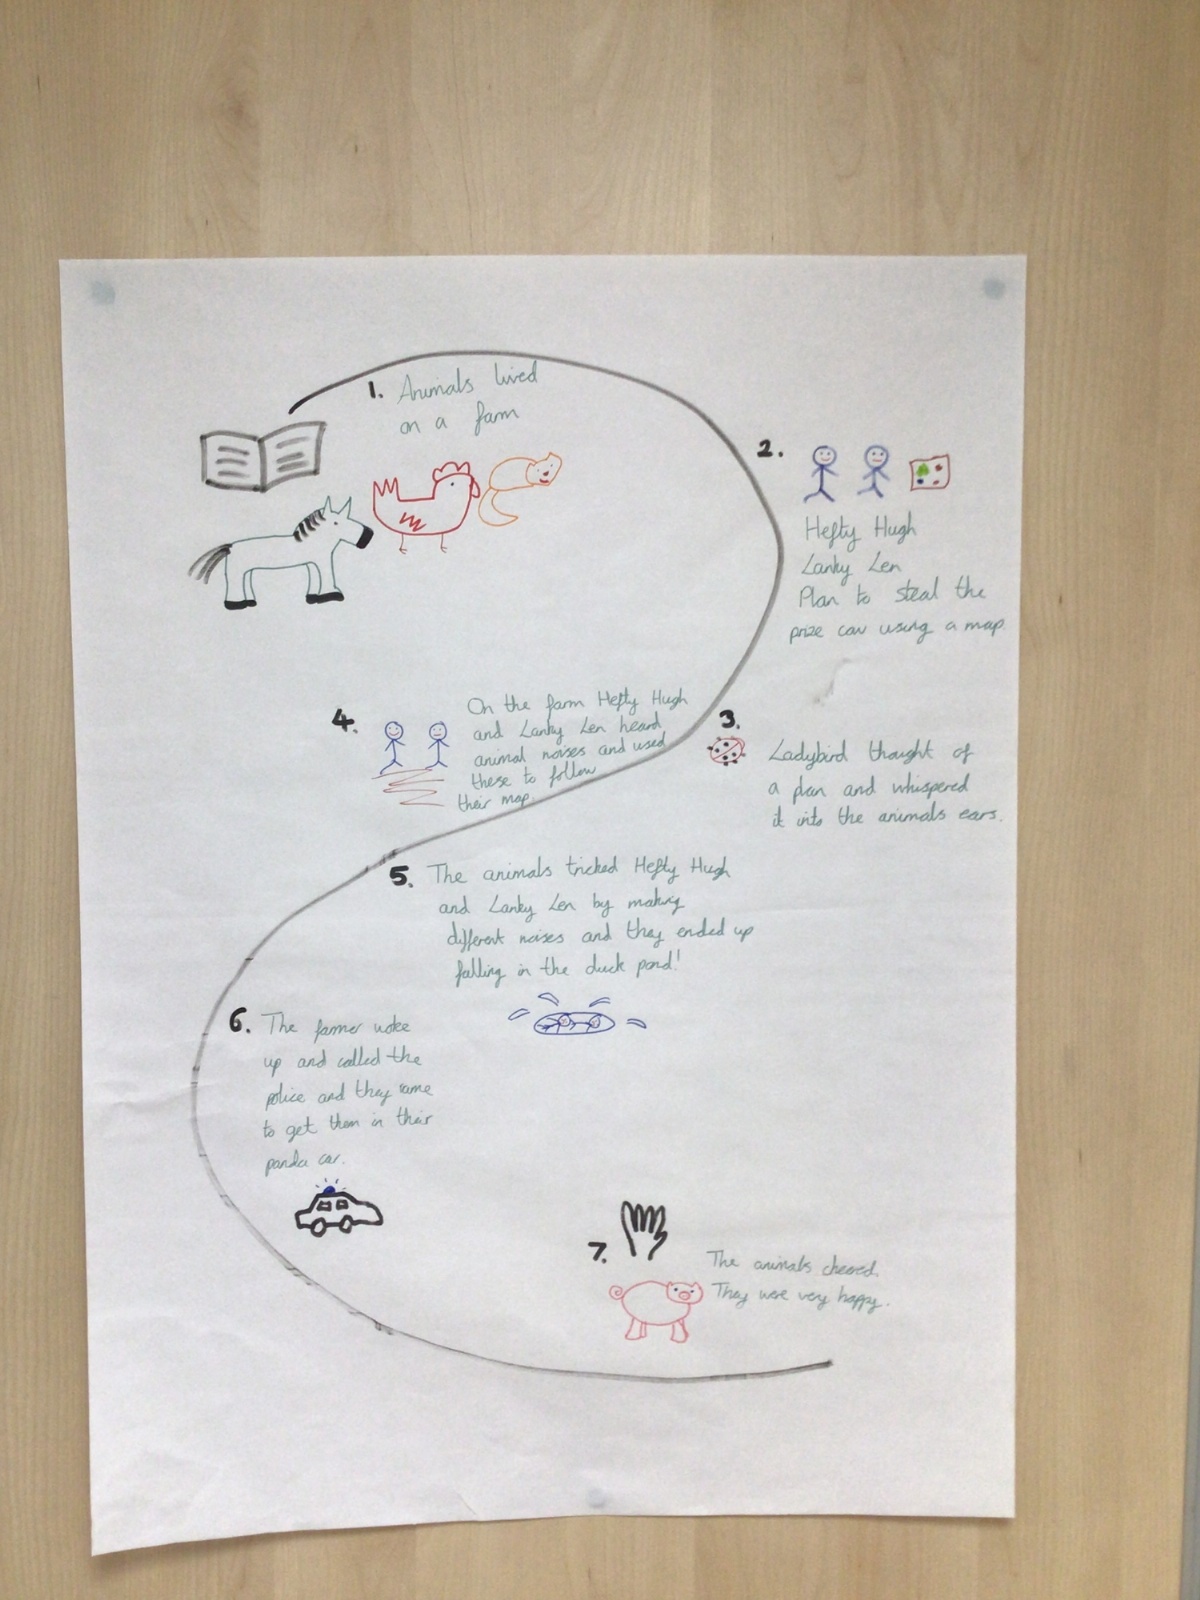 1. Animals lived
on a farm
2.
Hefty Hugh
Lanky Len
Plan to steal the
prize cow using a map.
3.
Ladybird thought of
a plan and whispered
it into the animals ears.
4. On the farm Hefty Hugh
and Lanky Len heard
animal noises and used
these to follow
their map.
5. The animals tricked Hefty Hugh
and Lanky Len by making
different noises and they ended up
falling in the duck pond!
6. The farmer woke
up and called the
police and they came
to get them in their
panda car.
7.
The animals cheered.
They were very happy.